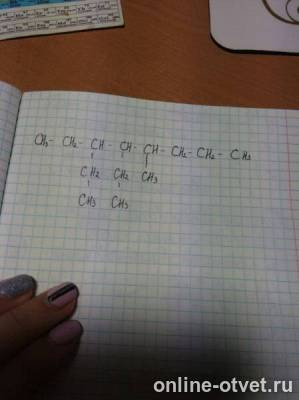 CH₃ - CH₂ - CH - CH - CH - CH₂ - CH₂ - CH₃
CH₂ CH₂ CH₃
CH₃ CH₃
online-otvet.ru